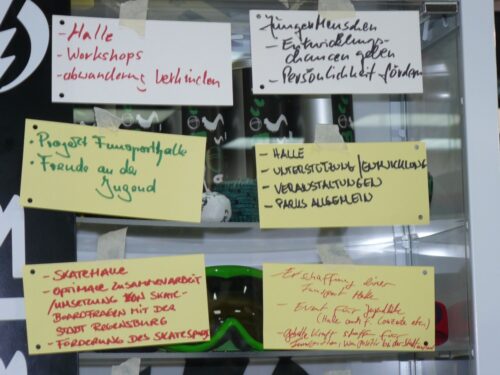 - Halle
- Workshops
- abwanderung verhindern
jungen Menschen
- Entwicklungs-
chancen geben
- Persönlichkeit fördern
- Projekt Funsporthalle
- Freude an der
Jugend
- HALLE
- UNTERSTÜTZUNG/ENTWICKLUNG
- VERANSTALTUNGEN
- PARKS ALLGEMEIN
- SKATEHALLE
- OPTIMALE ZUSAMMENARBEIT
/UMSETZUNG VON SKATE-
BOARDFRAGEN MIT DER
STADT REGENSBURG
- FÖRDERUNG DES SKATESPORTS
- Erschaffung einer
Funsport Halle
- Event für Jugendliche
(Halle auch f. Konzerte etc.)
- schaffen für